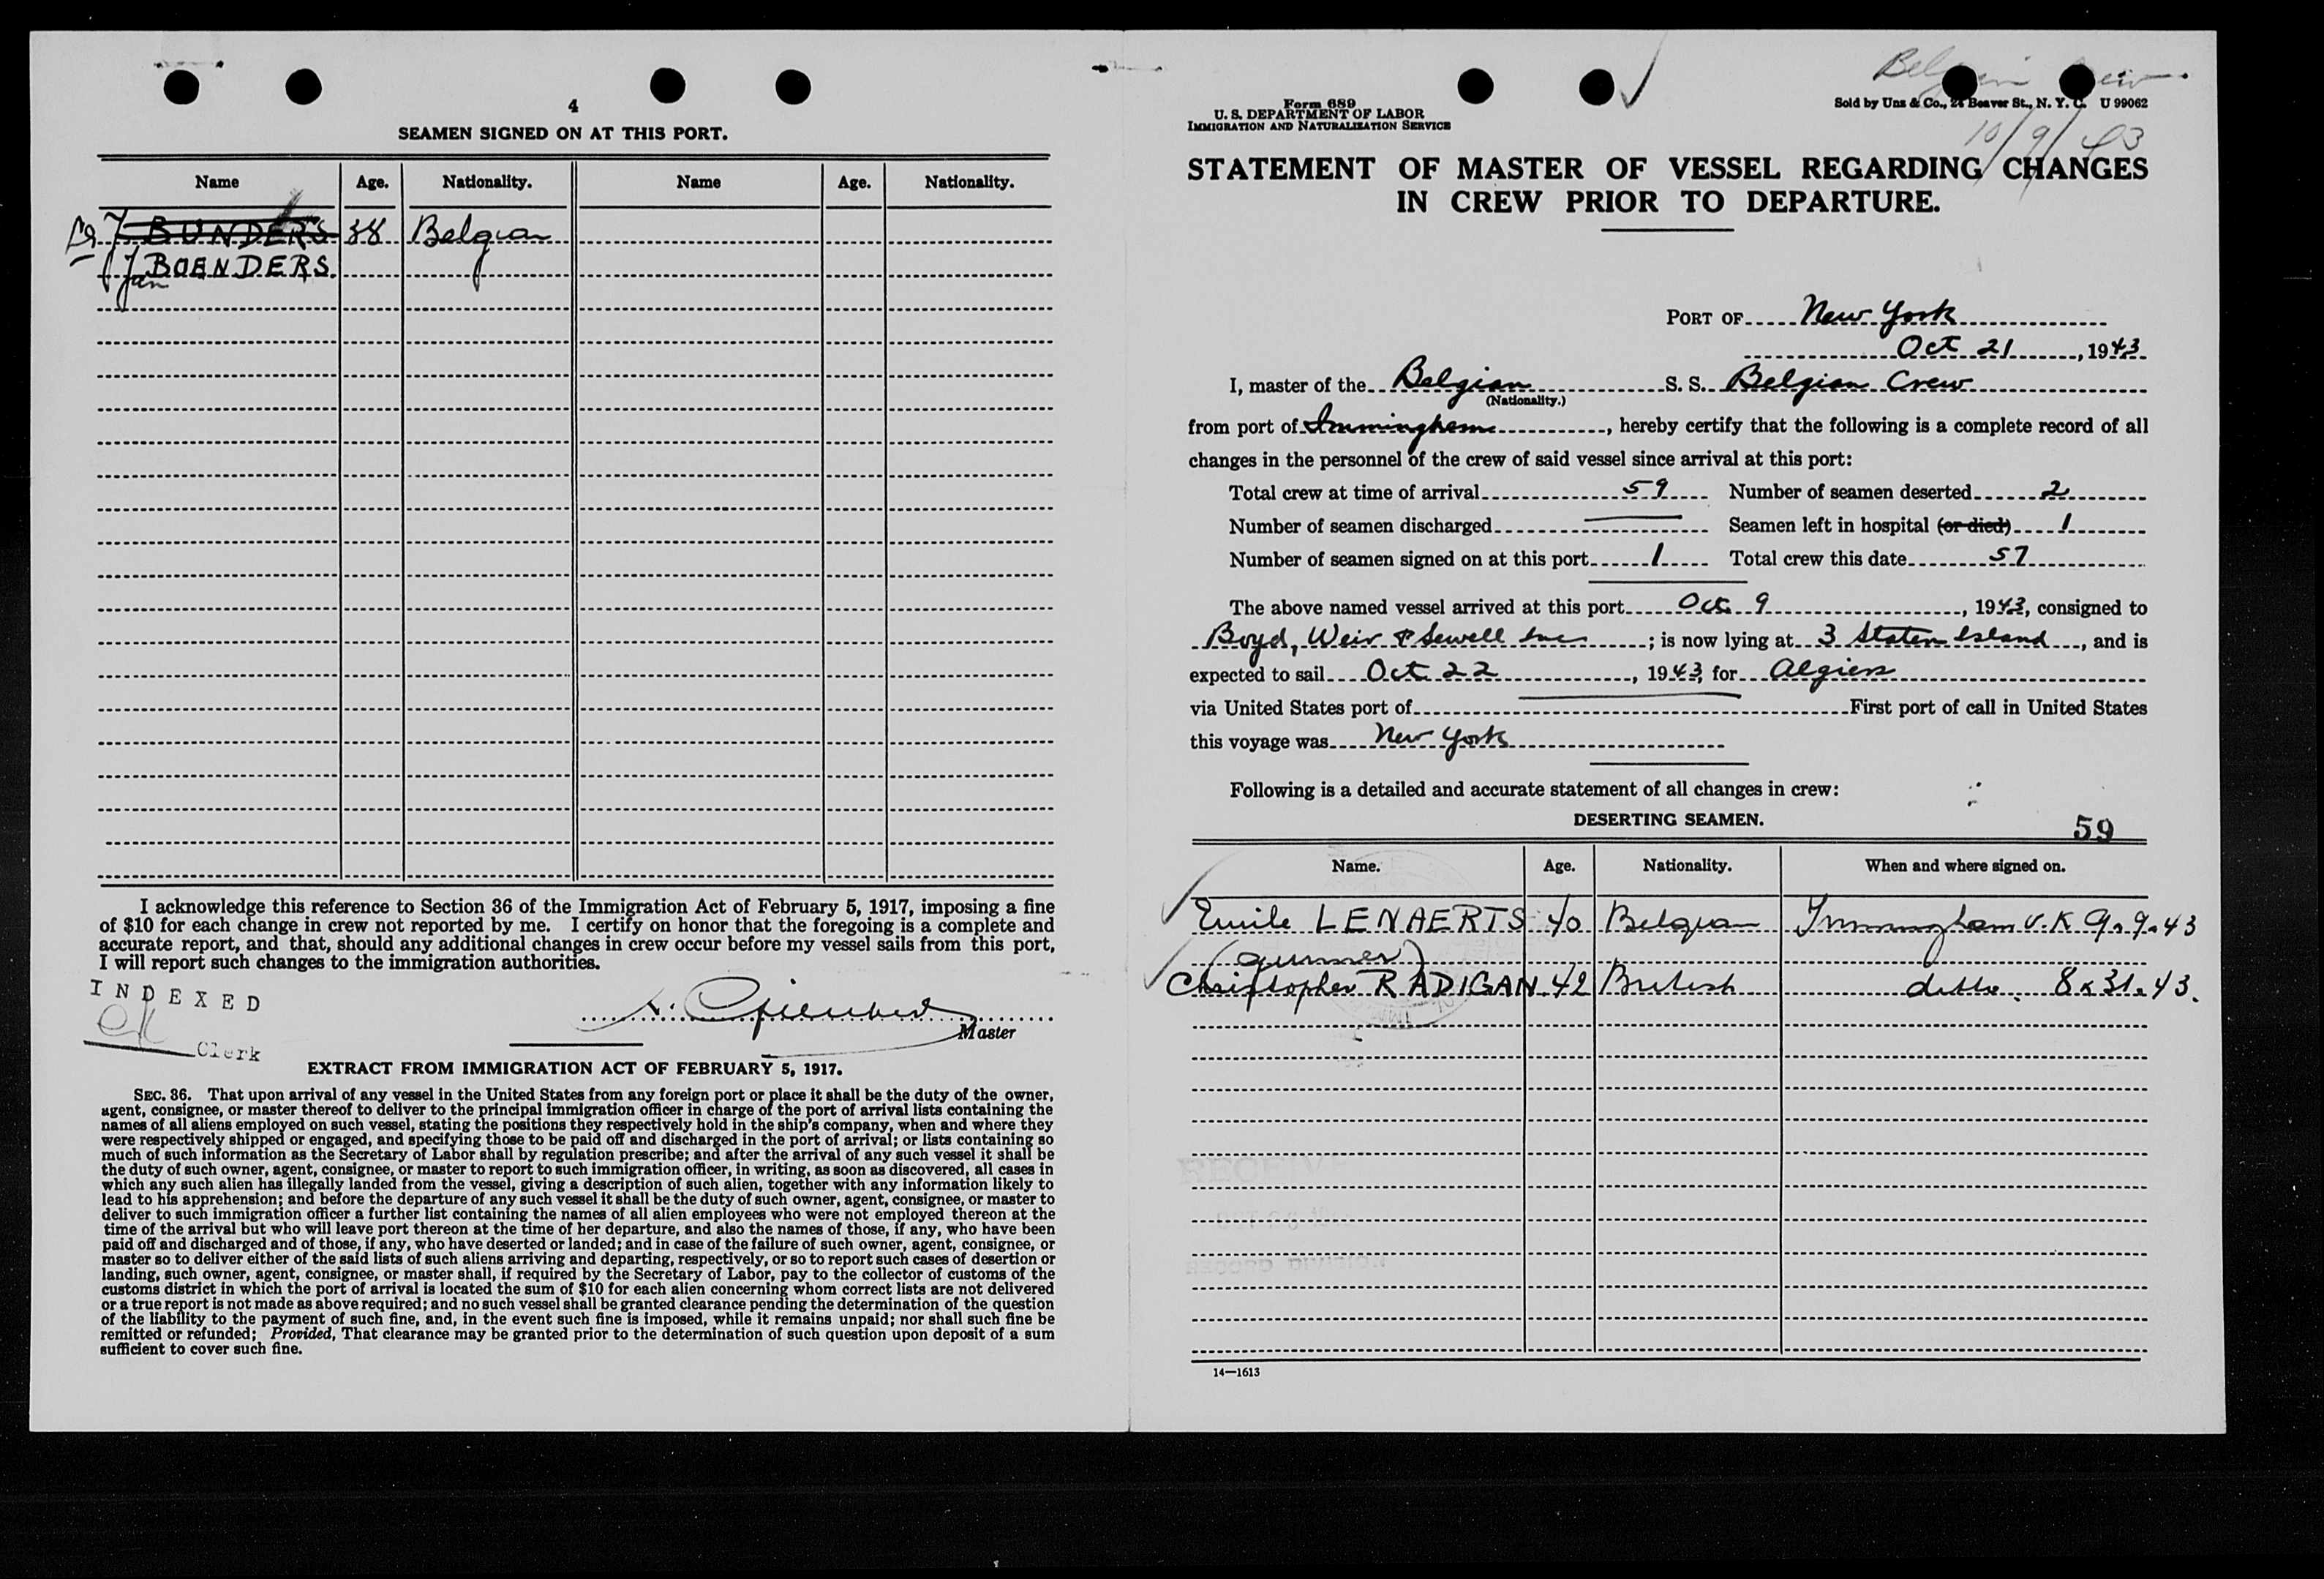 4
SEAMEN SIGNED ON AT THIS PORT.
Name Age. Nationality. Name Age. Nationality.
J BUNDERS 38 Belgian
J BOENDERS.
Jan
I acknowledge this reference to Section 36 of the Immigration Act of February 5, 1917, imposing a fine
of $10 for each change in crew not reported by me. I certify on honor that the foregoing is a complete and
accurate report, and that, should any additional changes in crew occur before my vessel sails from this port,
I will report such changes to the immigration authorities.
INDEXED
Clerk
Master
EXTRACT FROM IMMIGRATION ACT OF FEBRUARY 5, 1917.
SEC. 36. That upon arrival of any vessel in the United States from any foreign port or place it shall be the duty of the owner,
agent, consignee, or master thereof to deliver to the principal immigration officer in charge of the port of arrival lists containing the
names of all aliens employed on such vessel, stating the positions they respectively hold in the ship's company, when and where they
were respectively shipped or engaged, and specifying those to be paid off and discharged in the port of arrival; or lists containing so
much of such information as the Secretary of Labor shall by regulation prescribe; and after the arrival of any such vessel it shall be
the duty of such owner, agent, consignee, or master to report to such immigration officer, in writing, as soon as discovered, all cases in
which any such alien has illegally landed from the vessel, giving a description of such alien, together with any information likely to
lead to his apprehension; and before the departure of any such vessel it shall be the duty of such owner, agent, consignee, or master to
deliver to such immigration officer a further list containing the names of all alien employees who were not employed thereon at the
time of the arrival but who will leave port thereon at the time of her departure, and also the names of those, if any, who have been
paid off and discharged and of those, if any, who have deserted or landed; and in case of the failure of such owner, agent, consignee, or
master so to deliver either of the said lists of such aliens arriving and departing, respectively, or so to report such cases of desertion or
landing, such owner, agent, consignee, or master shall, if required by the Secretary of Labor, pay to the collector of customs of the
customs district in which the port of arrival is located the sum of $10 for each alien concerning whom correct lists are not delivered
or a true report is not made as above required; and no such vessel shall be granted clearance pending the determination of the question
of the liability to the payment of such fine, and, in the event such fine is imposed, while it remains unpaid; nor shall such fine be
remitted or refunded; Provided, That clearance may be granted prior to the determination of such question upon deposit of a sum
sufficient to cover such fine.
Form 689
U. S. DEPARTMENT OF LABOR
IMMIGRATION AND NATURALIZATION SERVICE
Sold by Unz & Co., 24 Beaver St., N. Y. C. U 99062
10/9/43
STATEMENT OF MASTER OF VESSEL REGARDING CHANGES
IN CREW PRIOR TO DEPARTURE.
PORT OF New York
Oct 21, 1943
I, master of the Belgian S. S. Belgian Crew
(Nationality.)
from port of Immingham, hereby certify that the following is a complete record of all
changes in the personnel of the crew of said vessel since arrival at this port:
Total crew at time of arrival 59 Number of seamen deserted 2
Number of seamen discharged Seamen left in hospital (or died) 1
Number of seamen signed on at this port 1 Total crew this date 57
The above named vessel arrived at this port Oct. 9, 1943, consigned to
Boyd, Weir & Sewell Inc; is now lying at 3 Staten Island, and is
expected to sail Oct. 22, 1943, for Algiers
via United States port of First port of call in United States
this voyage was New York
Following is a detailed and accurate statement of all changes in crew:
DESERTING SEAMEN.
59
Name. Age. Nationality. When and where signed on.
Emile LENAERTS 40 Belgian Immingham U.K 9.9.43
(gunner)
Christopher RADIGAN 42 British ditto. 8.31.43.
14—1613